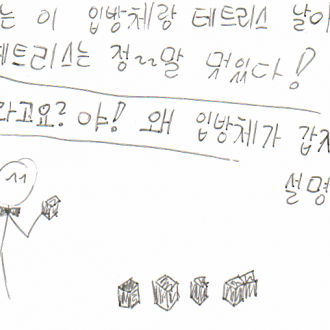 는 이 입방체랑 테트리스 날이
테트리스는 정~~말 멋있다!
라고요? 야! 왜 입방체가 갑자
설명